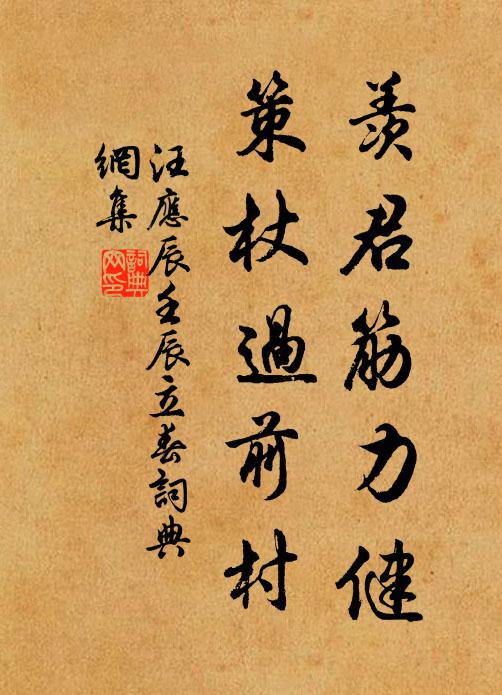 羨君筋力健
策杖過前村
汪應辰壬辰立春詞典
網集
詞典
网印